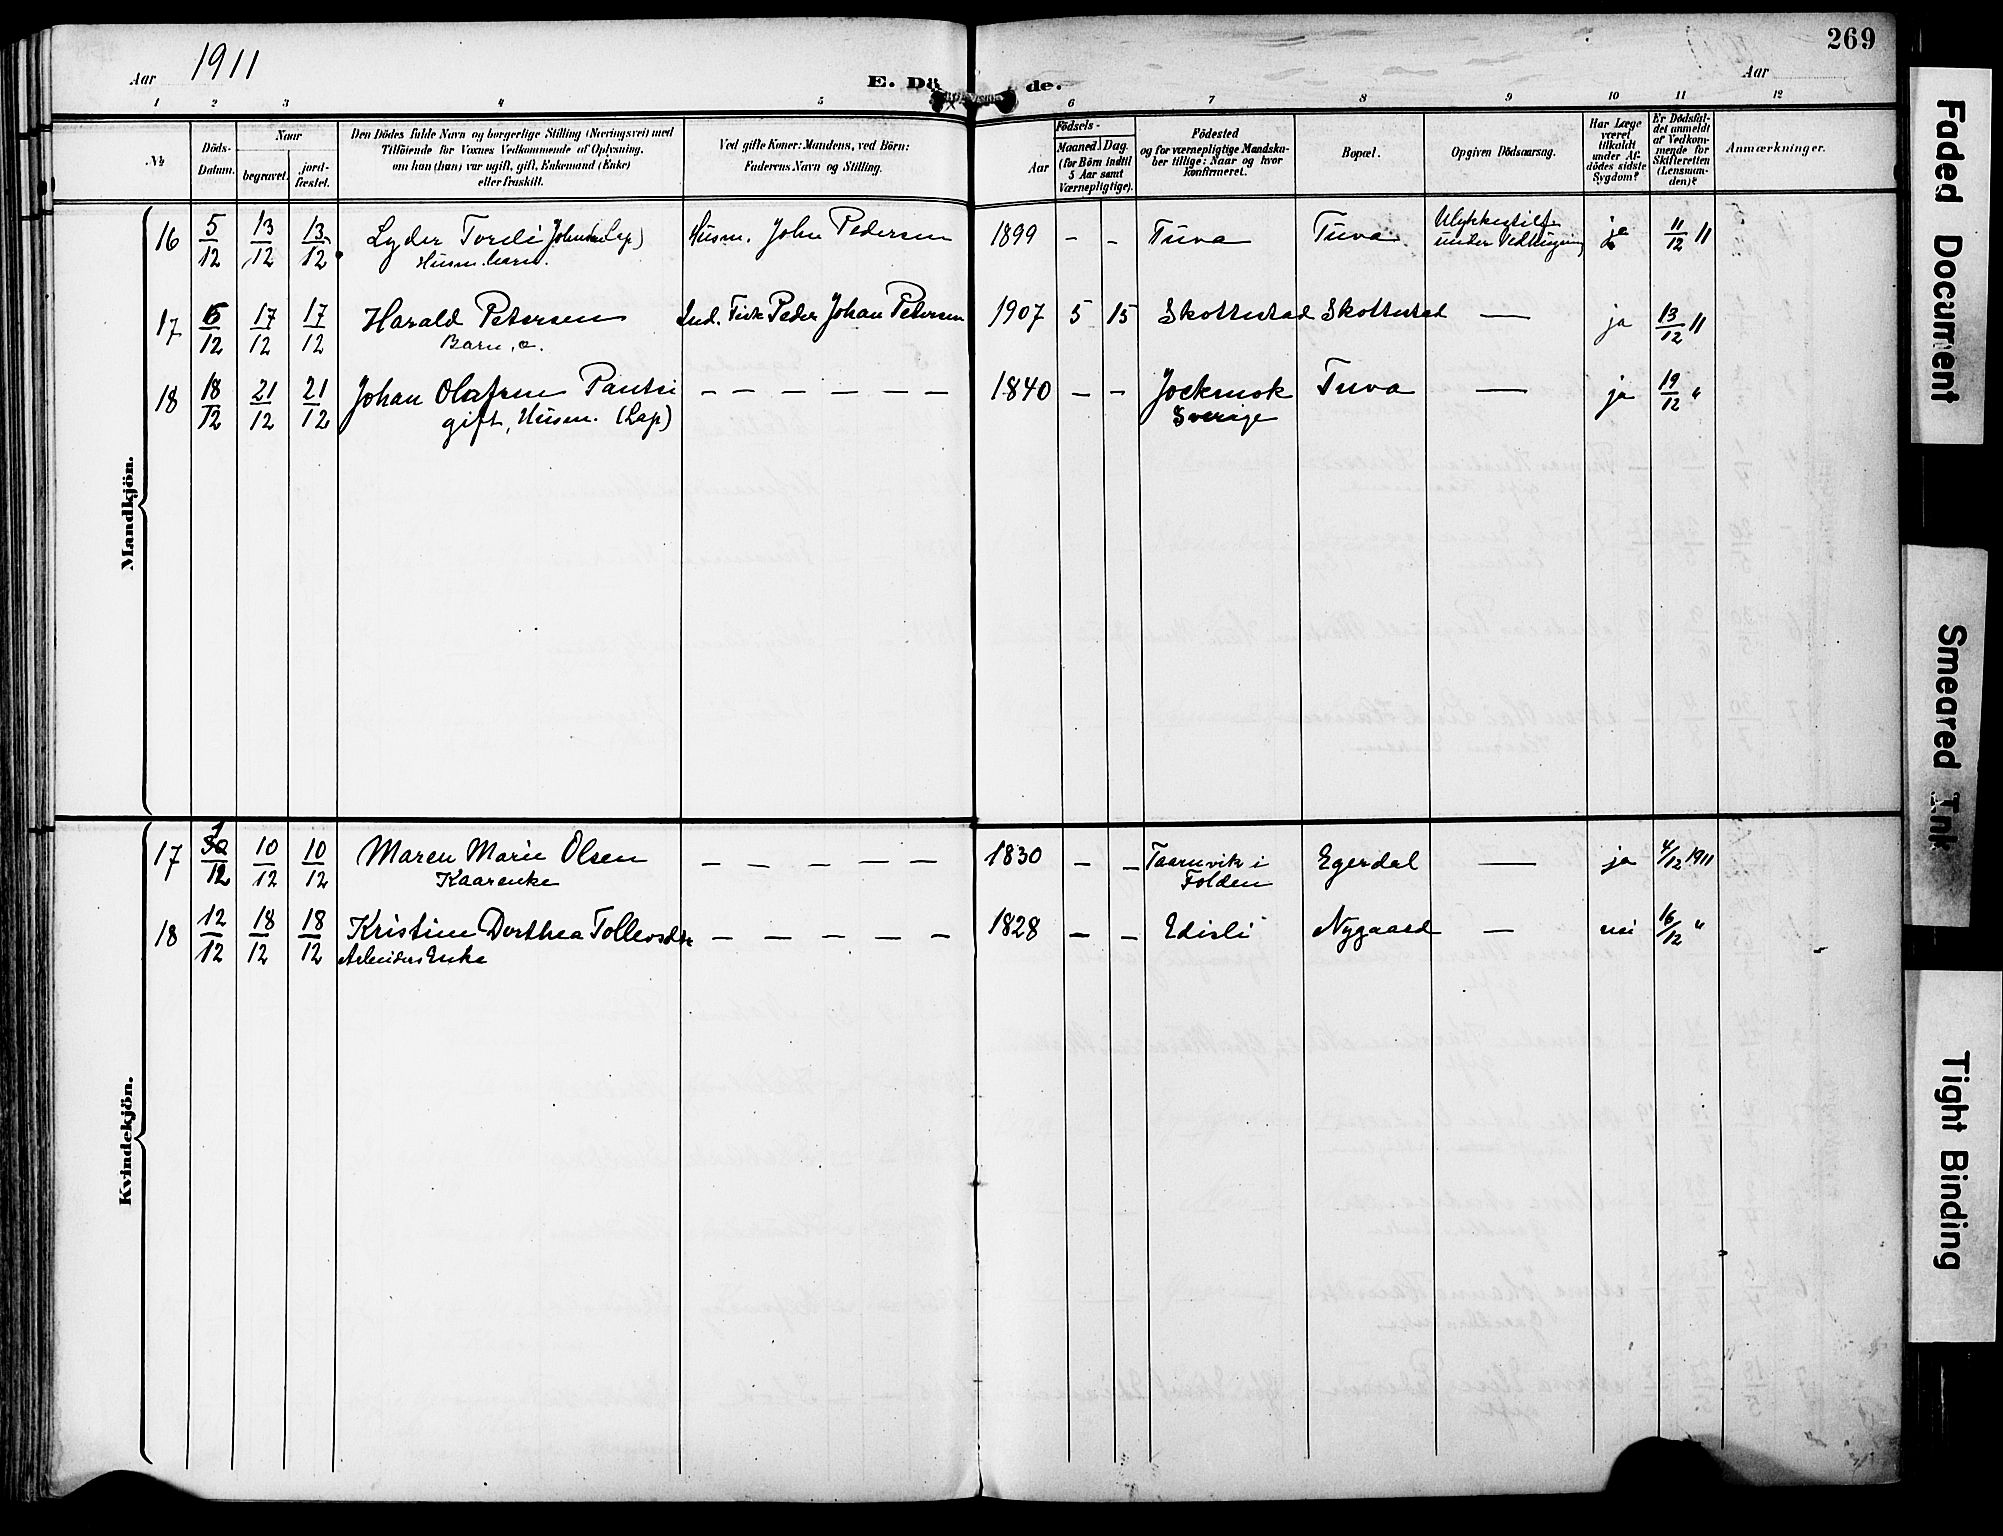 269
Aar 1911
E. Dö de.
Aar
1 2 3 4 5 6 7 8 9 10 11 12
№
Döds-Datum.
Naar
begravet.
jord-fæstet.
Den Dödes fulde Navn og borgerlige Stilling (Næringsvei) med
Tilföiende for Voxnes Vedkommende af Oplysning,
om hun (han) var ugift, gift, Enkemand (Enke)
eller fraskilt.
Ved gifte Koner: Mandens, ved Börn:
Faderens Navn og Stilling.
Födsels-
Aar
Maaned. Dag.
(for Börn indtil
5 Aar samt
Værnepligtige).
Födested
og for værnepligtige Mandska-
ber tillige: Naar og hvor
konfirmeret.
Bopæl.
Opgiven Dödsaarsag.
Har Læge
været
tilkaldt
under Af-
dödes sidste
Sygdom?
Er Dödsfal-
det anmeldt
af Vedkom-
mende for
Skifteretten
(Lensman-
den)?
Anmærkninger.
Mandkjön.
16 5/12 13/12 13/12 Lyder Tordi Johnsen (Lap) Husm. John Pedersen 1899 - - Tuva Tuva Ulykkestilf. ja 11/12 11
Husm. barn. under Vedhugning
17 6/12 17/12 17/12 Harald Petersen Ind. Fisk Peder Johan Petersen 1907 5 15 Skottestad Skottestad — ja 13/12 11
Barn
18 18/12 21/12 21/12 Johan Olafsen Pantsi - - - - - - 1840 - - Jockmok Tuva — ja 19/12 "
gift, Husm. (Lap) Sverige
Kvindekjön.
17 1/12 10/12 10/12 Maren Marie Olsen - - - - - 1830 - - Taarnvik i Egerdal — ja 4/12 1911
Kaarenke Folden
18 12/12 18/12 18/12 Kristine Dorthea Tollevsdtr - - - - - 1828 - - Edisli Nygaard — nei 16/12 "
Arbeiders Enke
Faded Document
Smeared Ink
Tight Binding